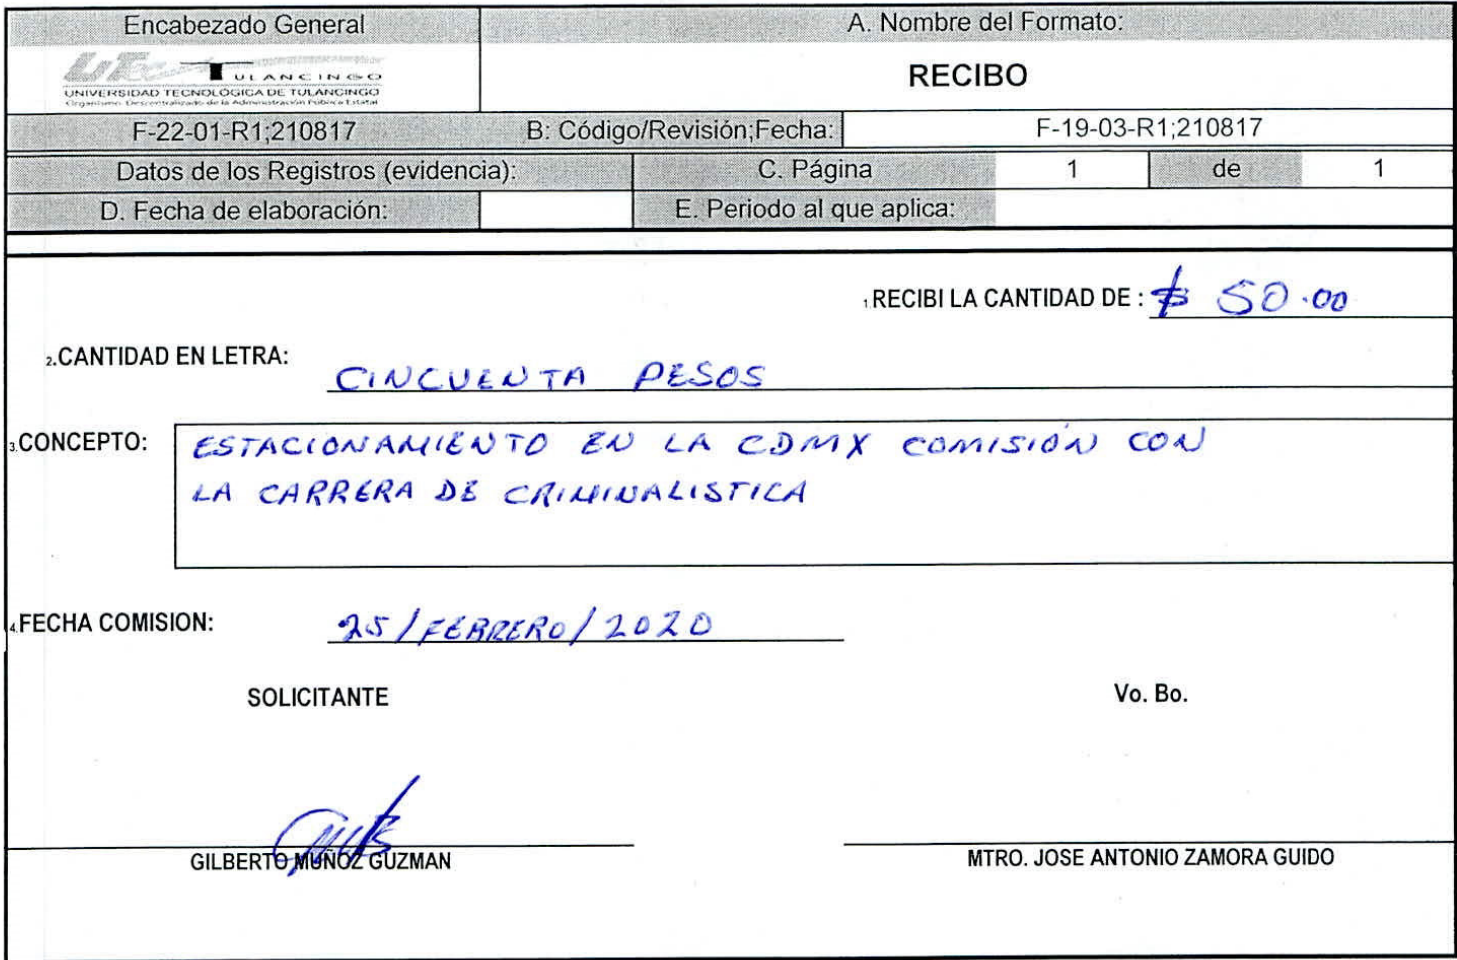 Encabezado General
A. Nombre del Formato:
TULANCINGO
UNIVERSIDAD TECNOLÓGICA DE TULANCINGO
Organismo Descentralizado de la Administración Pública Estatal
RECIBO
F-22-01-R1;210817
B: Código/Revisión;Fecha:
F-19-03-R1;210817
Datos de los Registros (evidencia):
C. Página
1
de
1
D. Fecha de elaboración:
E. Periodo al que aplica:
1.RECIBI LA CANTIDAD DE : $ 50.00
2.CANTIDAD EN LETRA: CINCUENTA PESOS
3.CONCEPTO: ESTACIONAMIENTO EN LA CDMX COMISIÓN CON
LA CARRERA DE CRIMINALISTICA
4.FECHA COMISION: 25/FEBRERO/2020
SOLICITANTE
Vo. Bo.
GILBERTO MUÑOZ GUZMAN
MTRO. JOSE ANTONIO ZAMORA GUIDO